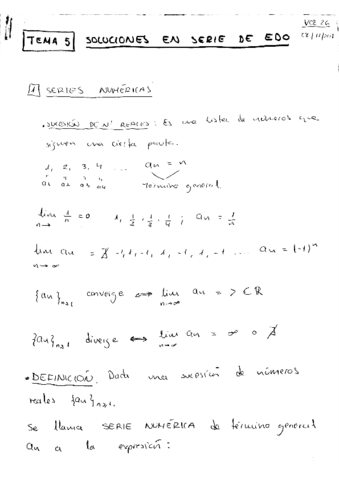 TEMA 5 SOLUCIONES EN SERIE DE EDO
1 SERIES NUMÉRICAS
· SUCESIÓN DE Nº REALES: Es una lista de números que
siguen una cierta pauta.
1, 2, 3, 4 ... an = n
a1 a2 a3 a4 término general
lim 1/n = 0 1, 1/2, 1/3, 1/4; an = 1/n
n→
lim an = ∄ -1, 1, -1, 1, -1, 1, -1 ... an = (-1)^n
n→∞
{an}n≥1 converge ⟺ lim an = > C ℝ
n→∞
{an}n≥1 diverge ⟺ lim an = ∞ o ∄
n→∞
· DEFINICIÓN. Dada una sucesión de números
reales {an}n≥1.
Se llama SERIE NUMÉRICA de término general
an a la expresión: